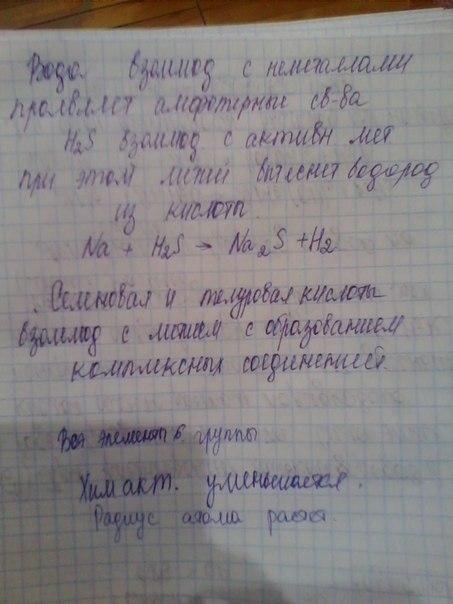 Вода взаимод с неметаллами
проявляет амфотерные св-ва
H₂S взаимод с активн мет
при этом металл вытеснит водород
из кислоты.
Na + H₂S → Na₂S + H₂
Селеновая и телуровая кислоты
взаимод с метал с образованием
комплексных соединений.
Все элементы 6 группы
Хим акт. уменьшается.
Радиус атома растет.